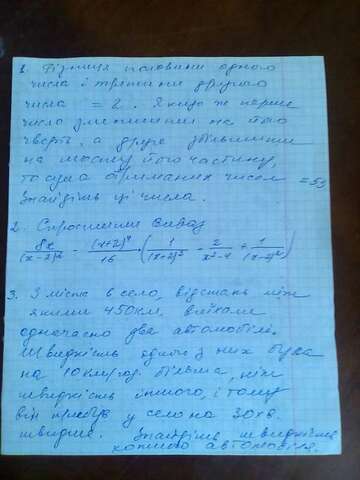 1. Різниця половини одного
числа і третини другого
числа = 2. Якщо ж перше
число зменшити на його
чверть, а друге збільшити
на шосту його частину,
то сума отриманих чисел = 53
Знайдіть ці числа.
2. Спростити вираз
8x/(x-2)² - (x+2)⁴/16 · (1/(x+2)² - 2/(x²-4) + 1/(x-2)²)
3. З міста в село, відстань між
якими 450км. виїхали
одночасно два автомобілі.
Швидкість одного з них була
на 10км/год. більша, ніж
швидкість іншого, і тому
він прибув у село на 30хв.
швидше. Знайдіть швидкість
кожного автомобіля.